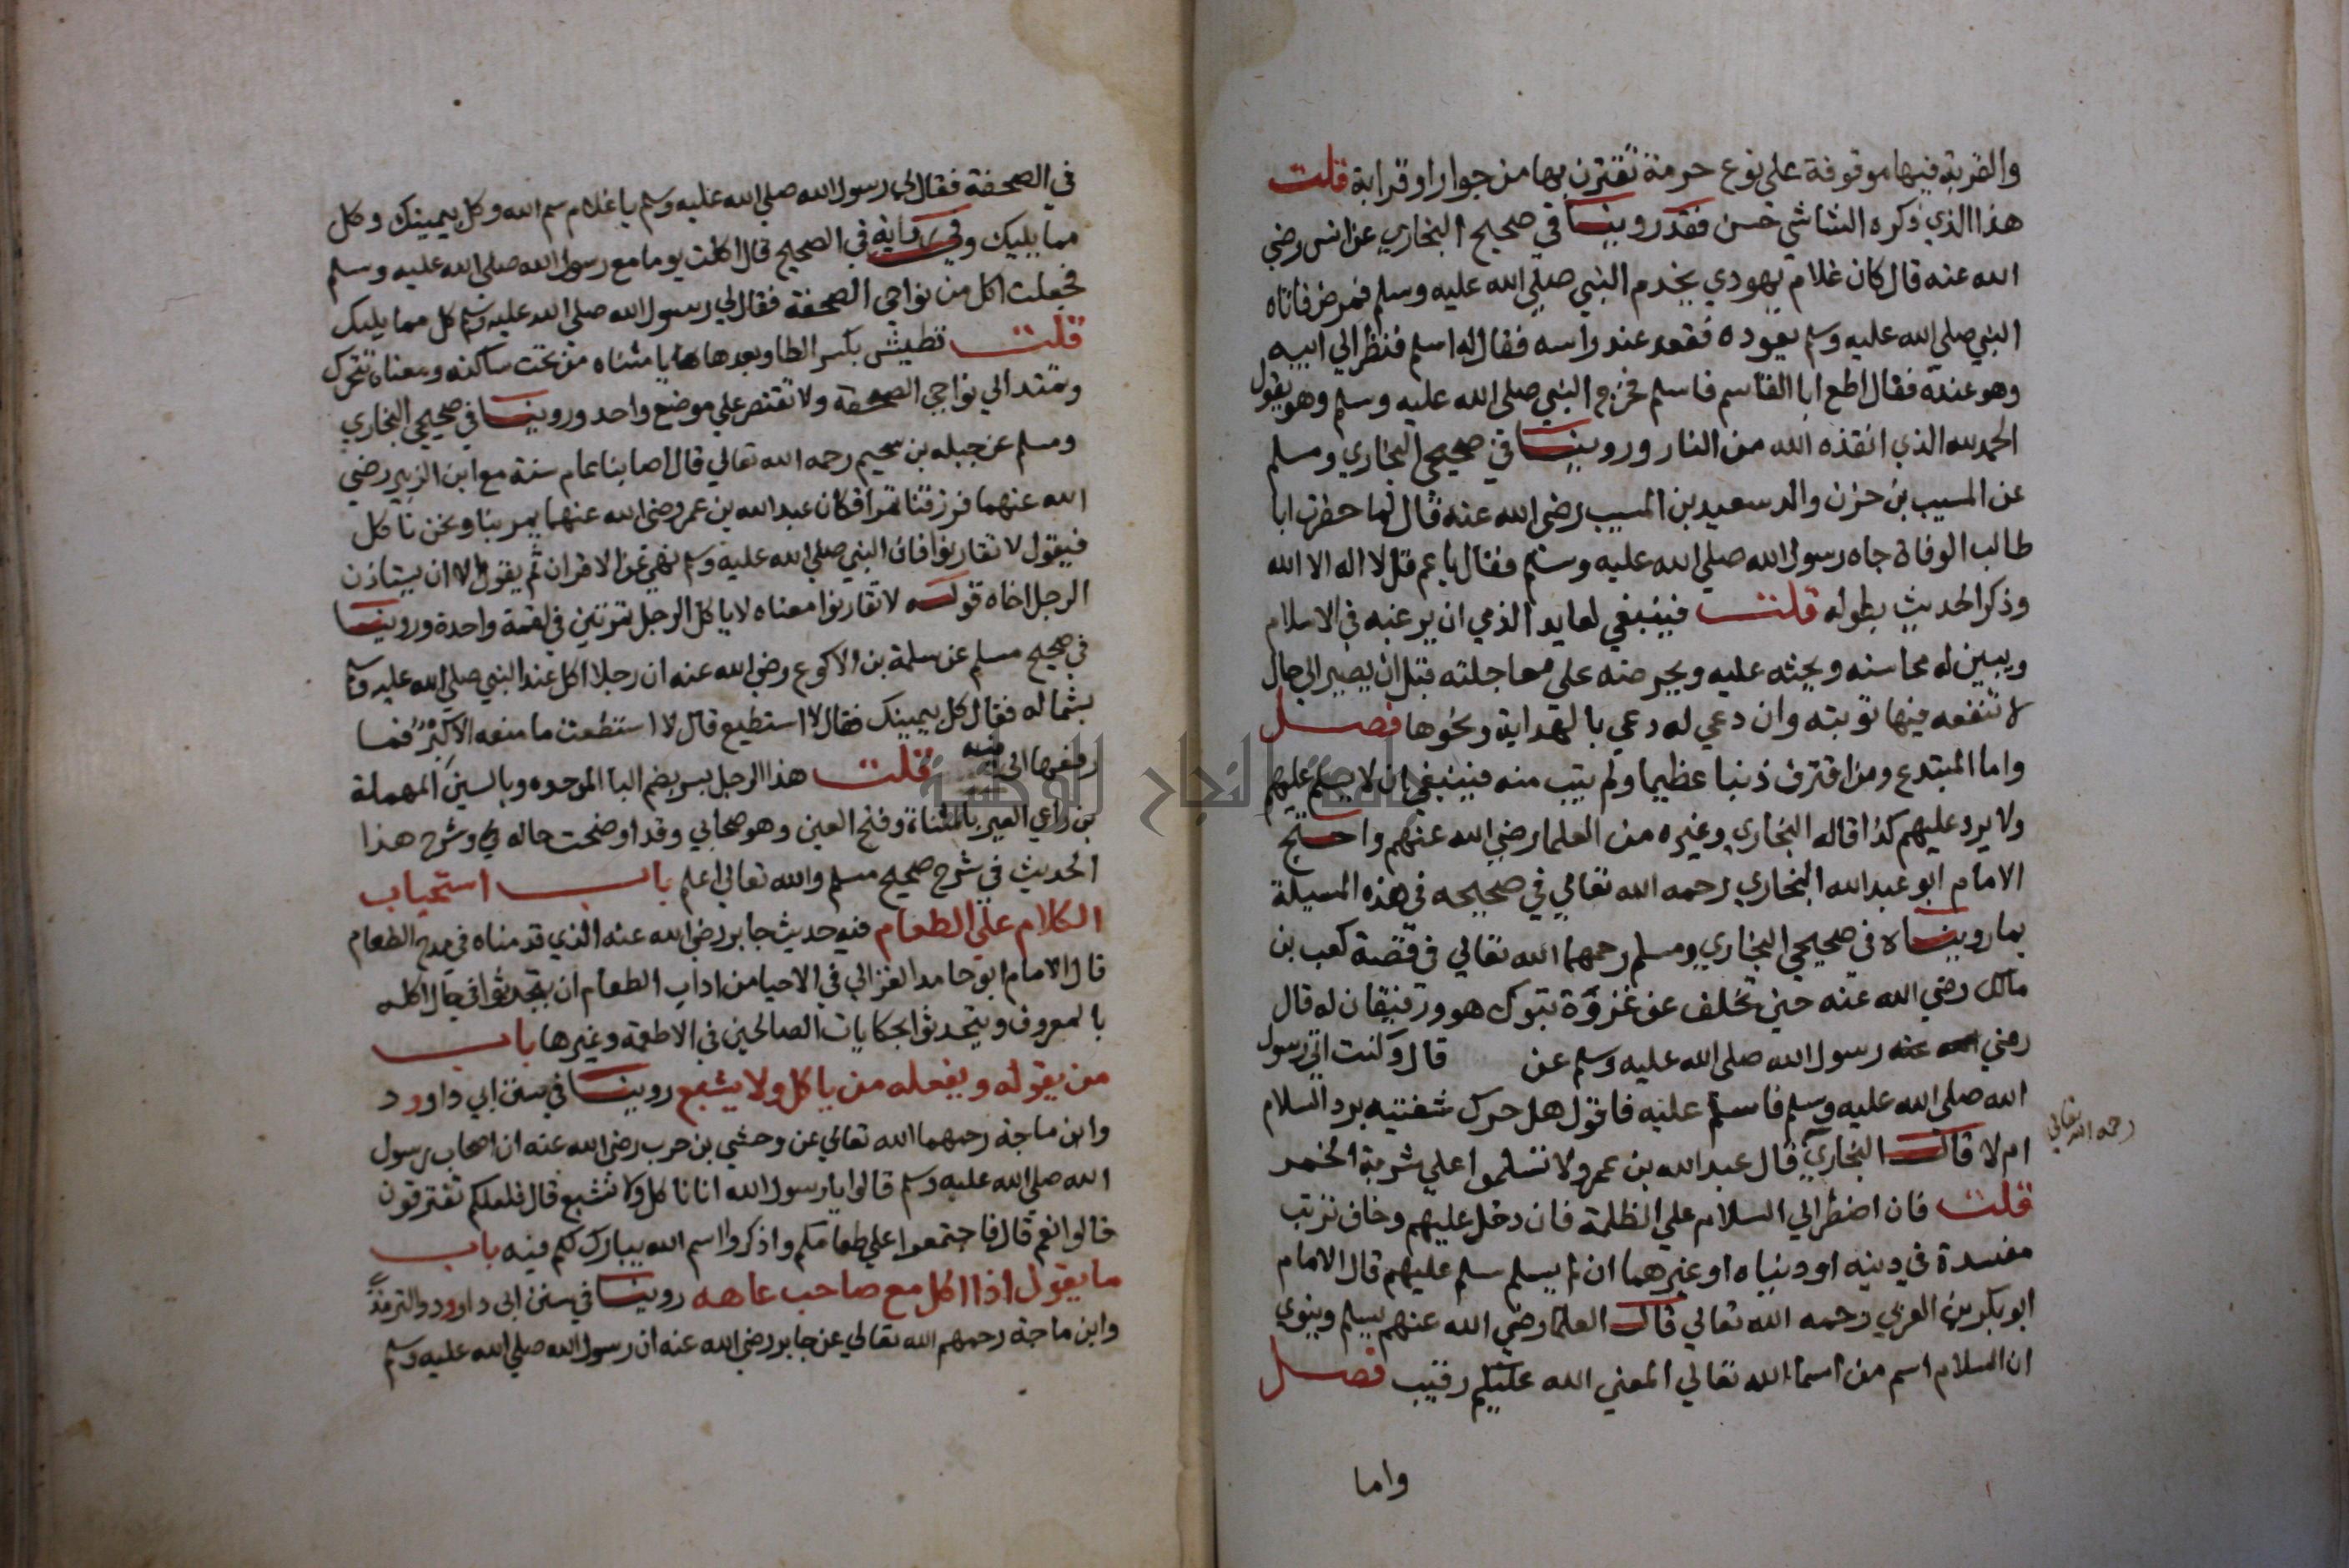 والقربة فيها موقوفة على نوع حرمة تقترن بها من جوار او قرابة قلت
هذا الذي ذكره الشاشي حسن فقد روينا في صحيح البخاري عن انس رضي
الله عنه قال كان غلام يهودي يخدم النبي صلي الله عليه وسلم فمرض فاتاه
النبي صلي الله عليه وسلم يعوده فقعد عند راسه فقال له اسلم فنظر الي ابيه
وهو عنده فقال اطع ابا القاسم فاسلم فخرج النبي صلي الله عليه وسلم وهو يقول
الحمد لله الذي انقذه الله من النار وروينا في صحيحي البخاري ومسلم
عن المسيب بن حزن والد سعيد بن المسيب رضي الله عنه قال لما حضرت ابا
طالب الوفاة جاه رسول الله صلي الله عليه وسلم فقال يا عم قل لا اله الا الله
وذكر الحديث بطوله قلت فينبغي لعايد الذمي ان يرغبه في الاسلام
ويبين له محاسنه ويحثه عليه ويحرضه علي معاجلته قبل ان يصير الي حال
لا تنفعه فيها توبته وان دعي له دعي بالهداية ونحوها فصل
واما المبتدع ومن اقترف ذنبا عظيما ولم يتب منه فينبغي ان لا يسلم عليهم
ولا يرد عليهم كذا قاله البخاري وغيره من العلما رضي الله عنهم واحتج
الامام ابو عبد الله البخاري رحمه الله تعالي في صحيحه في هذه المسيلة
بما رويناه في صحيحي البخاري ومسلم رحمهما الله تعالي في قصة كعب بن
مالك رضي الله عنه حين تخلف عن غزوة تبوك هو ورفيقان له قال
رضي الله عنه رسول الله صلي الله عليه وسلم عن قال وكنت اتي رسول
الله صلي الله عليه وسلم فاسلم عليه فاقول هل حرك شفتيه برد السلام
ام لا قال البخاري قال عبد الله بن عمرو لا تسلموا علي شربة الخمر
رحمه الله تعالي
قلت فان اضطر الي السلام علي الظلمة فان دخل عليهم وخاف ترتب
مفسدة في دينه او دنياه او غيرهما ان لم يسلم سلم عليهم قال الامام
ابو بكر بن العربي رحمه الله تعالي قال العلما رضي الله عنهم يسلم وينوي
ان السلام اسم من اسما الله تعالي المعني الله عليكم رقيب فصل
واما
في الصحفة فقال لي رسول الله صلي الله عليه وسلم يا غلام سم الله وكل بيمينك وكل
مما يليك وفي رواية في الصحيح قال اكلت يوما مع رسول الله صلي الله عليه وسلم
فجعلت اكل من نواحي الصحفة فقال لي رسول الله صلي الله عليه وسلم كل مما يليك
قلت تطيش بكسر الطا وبعدها يا مثناه من تحت ساكنه ومعناه تتحرك
وتمتد الي نواحي الصحفة ولا تقتصر علي موضع واحد وروينا في صحيحي البخاري
ومسلم عن جبله بن سحيم رحمه الله تعالي قال اصابنا عام سنة مع ابن الزبير رضي
الله عنهما فرزقنا تمرا فكان عبد الله بن عمر رضي الله عنهما يمر بنا ونحن ناكل
فيقول لا تقارنوا فان النبي صلي الله عليه وسلم نهي عن الاقران ثم يقول الا ان يستاذن
الرجل اخاه قوله لا تقارنوا معناه لا ياكل الرجل تمرتين في لقمة واحدة وروينا
في صحيح مسلم عن سلمة بن الاكوع رضي الله عنه ان رجلا اكل عند النبي صلي الله عليه وسلم
بشماله فقال كل بيمينك فقال لا استطيع قال لا استطعت ما منعه الا الكبر فما
رفعها الي فيه قلت هذا الرجل بسر بضم البا الموحده وبالسين المهملة
بن راعي العير بالمثناة وفتح العين وهو صحابي وقد اوضحت حاله في وشرح هذا
الحديث في شرح صحيح مسلم والله تعالي اعلم باب استحباب
الكلام علي الطعام فيه حديث جابر رضي الله عنه الذي قدمناه في مدح الطعام
قال الامام ابو حامد الغزالي في الاحيا من اداب الطعام ان يتحدثوا في حال اكله
بالمعروف ويتحدثوا بحكايات الصالحين في الاطعمة وغيرها باب
من يقوله ويفعله من ياكل ولا يشبع روينا في سنن ابي داوود
وابن ماجة رحمهما الله تعالي عن وحشي بن حرب رضي الله عنه ان اصحاب رسول
الله صلي الله عليه وسلم قالوا يا رسول الله انا ناكل ولا نشبع قال فلعلكم تفترقون
قالوا نعم قال فاجتمعوا علي طعامكم واذكروا اسم الله يبارك لكم فيه باب
ما يقول اذا اكل مع صاحب عاهه روينا في سنن ابي داوود والترمذي
وابن ماجة رحمهم الله تعالي عن جابر رضي الله عنه ان رسول الله صلي الله عليه وسلم
جامعة النجاح الوطنية